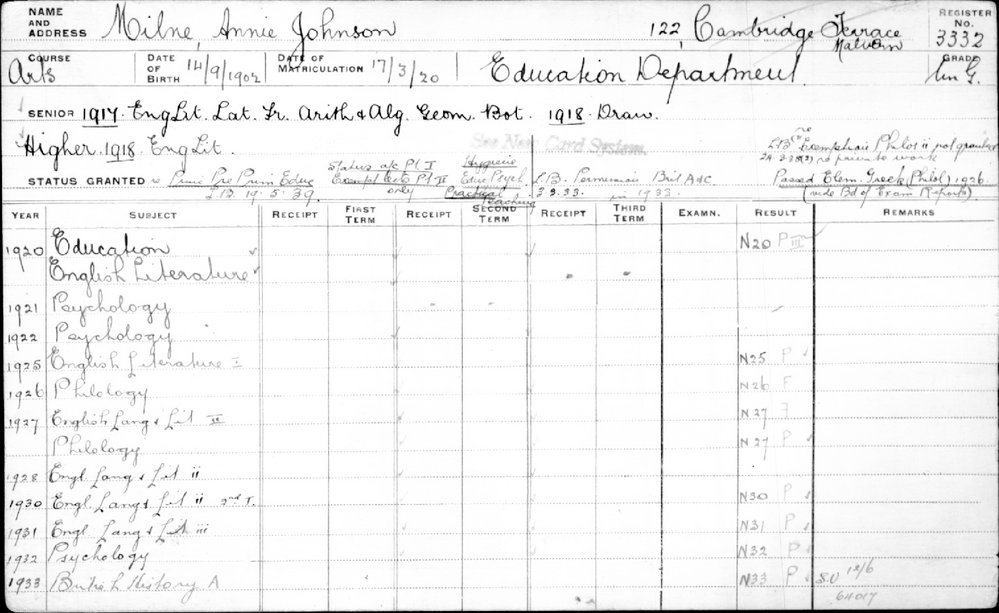 NAME AND ADDRESS Milne, Annie Johnson 122, Cambridge Terrace Malvern REGISTER No. 3332
COURSE Arts DATE OF BIRTH 14/9/1902 DATE OF MATRICULATION 17/3/20 Education Department GRADE
SENIOR 1917. Eng Lit. Lat. Fr. Arith & Alg. Geom. Bot. 1918. Draw.
Higher 1918. Eng Lit. See New Card System.
Exemption Philos ii not granted
prior to work
STATUS GRANTED Educ 19.5.39. Status a/c Pt I only Hygiene Educ Psych Practical Teaching L.B. Permission Brit A & C. 3.3.33. in 1933. Passed Elem. Greek (Philol) 1926 (vide Bd of Exam Reports)
YEAR SUBJECT RECEIPT FIRST TERM RECEIPT SECOND TERM RECEIPT THIRD TERM EXAMN. RESULT REMARKS
1920 Education N20 P III
English Literature
1921 Psychology
1922 Psychology
1925 English Literature I N25 P
1926 Philology N26 F
1927 English Lang & Lit II N27 F
Philology N27 P
1928 Engl. Lang & Lit ii
1930 Engl. Lang & Lit ii 2nd T. N30 P
1931 Engl Lang & Lit iii N31 P
1932 Psychology N32 P
1933 British History A N33 P S.U 12/6
64017